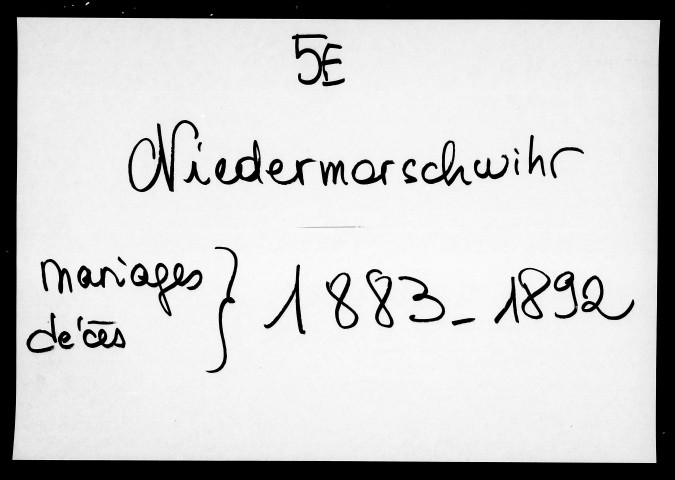 5E
Niedermorschwihr
mariages
décès } 1883-1892